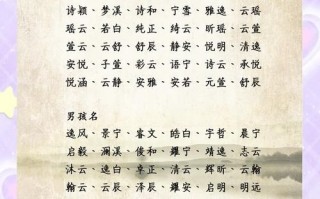 诗颖、梦溪、诗和、宁雪、雅逸、云瑶
瑶云、若白、纯正、绮云、安瑶、云萱
萱云、云舒、舒辰、静安、悦明、清逸
安悦、子萱、彩云、语宁、诗云、承悦
悦涵、云静、安雅、安若、元萱、舒辰
男孩名
逸风、景宁、睿文、皓白、宇哲、晨宁
启毅、澜溪、俊和、耀宁、靖逸、志云
沐云、逸白、卓正、云舒、辉昕、云翰
翰云、云辰、泽辰、耀安、启明、明远